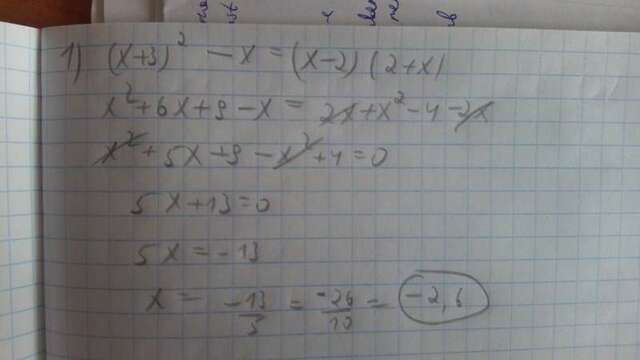 1) (x+3)² - x = (x-2)(2+x)
x²+6x+9-x = 2x+x²-4-2x
x²+5x+9-x²+4=0
5x+13=0
5x=-13
x = -13/5 = -26/10 = -2,6